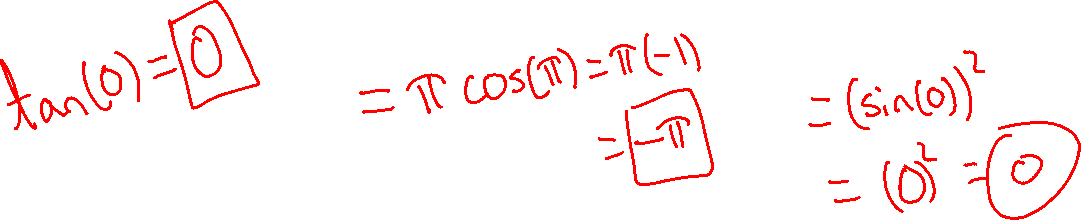 tan(0) = 0
= π cos(π) = π(-1)
= -π
= (sin(0))²
= (0)² = 0